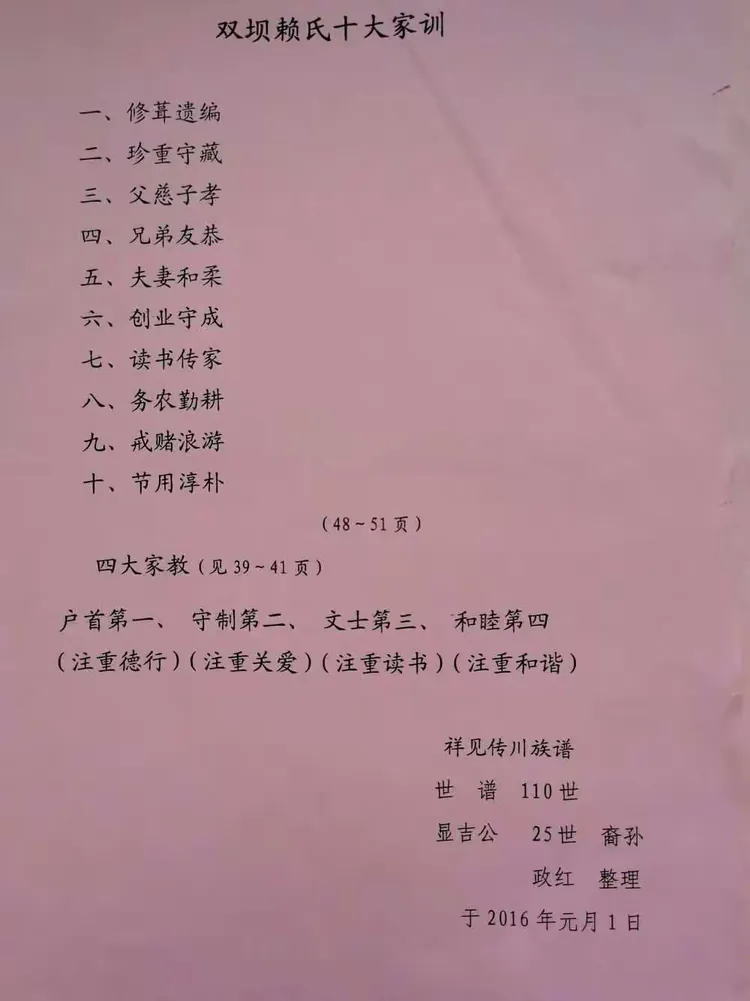 双坝赖氏十大家训
一、修葺遗编
二、珍重守藏
三、父慈子孝
四、兄弟友恭
五、夫妻和柔
六、创业守成
七、读书传家
八、务农勤耕
九、戒赌浪游
十、节用淳朴
(48~51页)
四大家教(见39~41页)
户首第一、 守制第二、 文士第三、 和睦第四
(注重德行)(注重关爱)(注重读书)(注重和谐)
祥见传川族谱
世 谱 110世
显吉公 25世 裔孙
政红 整理
于2016年元月1日